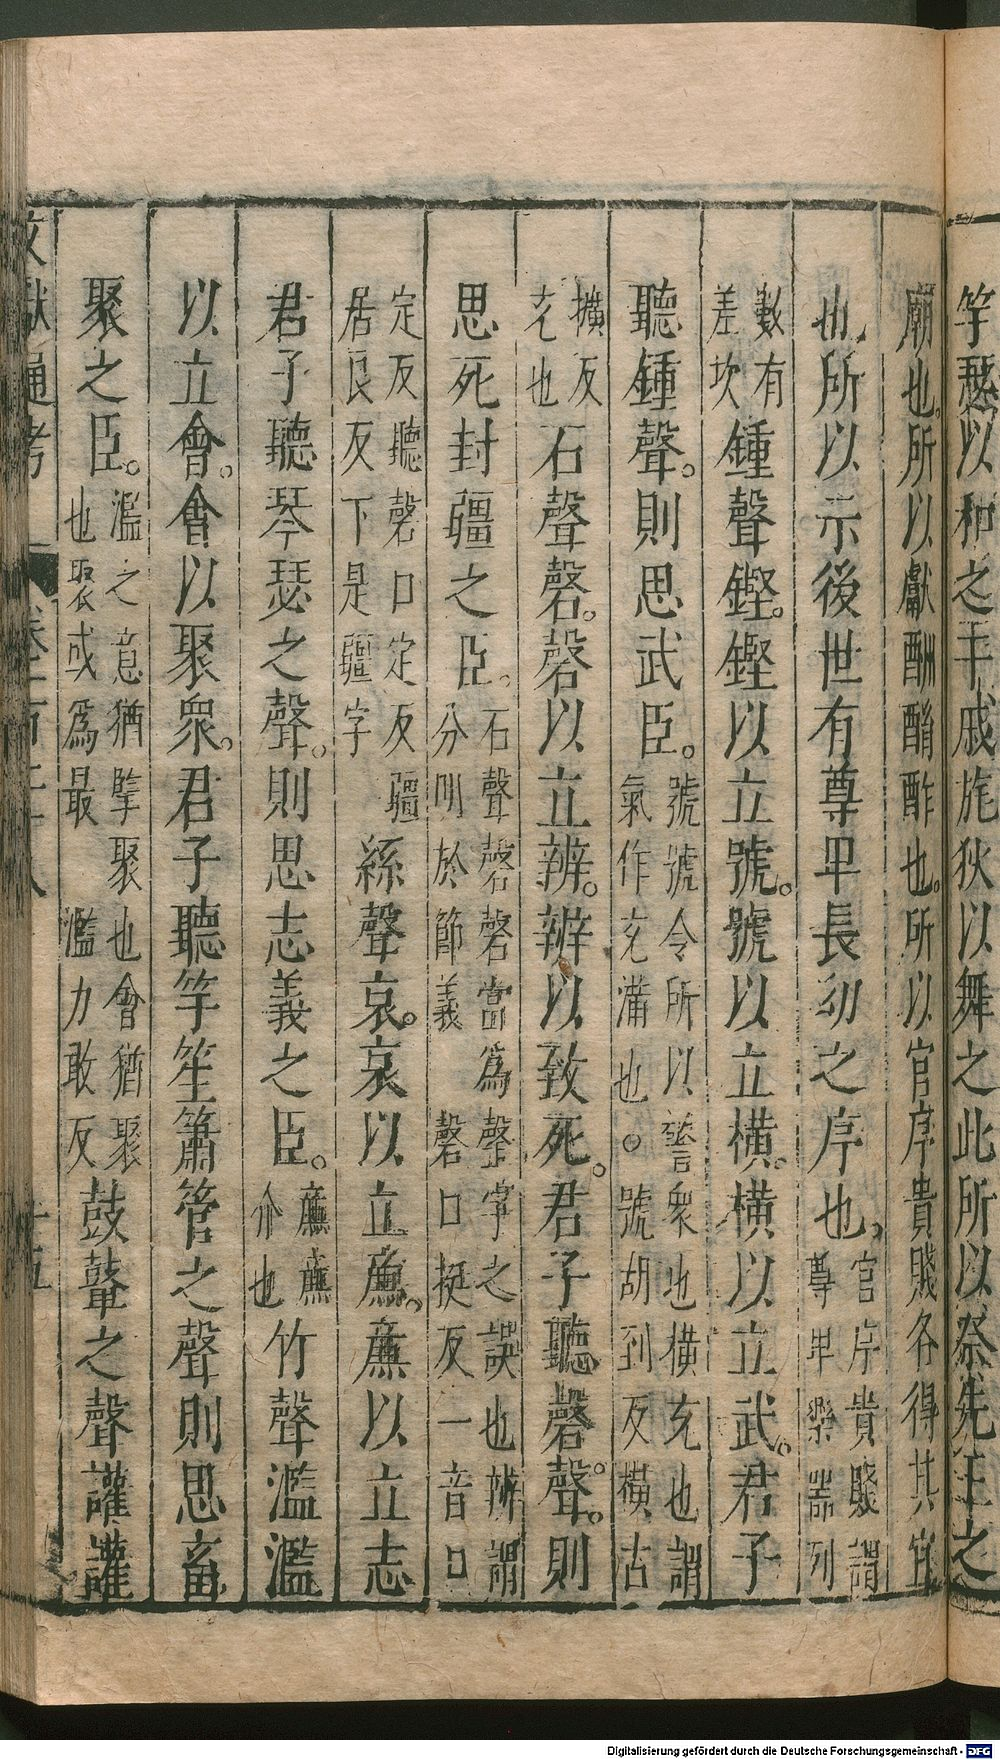 竽瑟以和之干戚旄狄以舞之此所以祭先王之
廟也所以獻酬酳酢也所以官序貴賤各得其宜
也所以示後世有尊卑長幼之序也官序貴賤謂
尊卑樂器列
數有
差次
鍾聲鏗鏗以立號號以立橫橫以立武君子
聽鍾聲則思武臣號號令所以警衆也橫充也謂
氣作充滿也號胡到反橫古
擴反
充也
石聲磬磬以立辨辨以致死君子聽磬聲則
思死封疆之臣石聲磬磬當爲罄字之誤也辨謂
分明於節義磬口挺反一音口
定反聽磬口定反疆
居良反下是疆字
絲聲哀哀以立廉廉以立志
君子聽琴瑟之聲則思志義之臣廉廉
介也
竹聲濫濫
以立會會以聚衆君子聽竽笙簫管之聲則思畜
聚之臣濫之意猶擥聚也會猶聚
也聚或爲最濫力敢反
鼓鼙之聲讙讙
文獻通考
十五
Digitalisierung gefördert durch die Deutsche Forschungsgemeinschaft - DFG